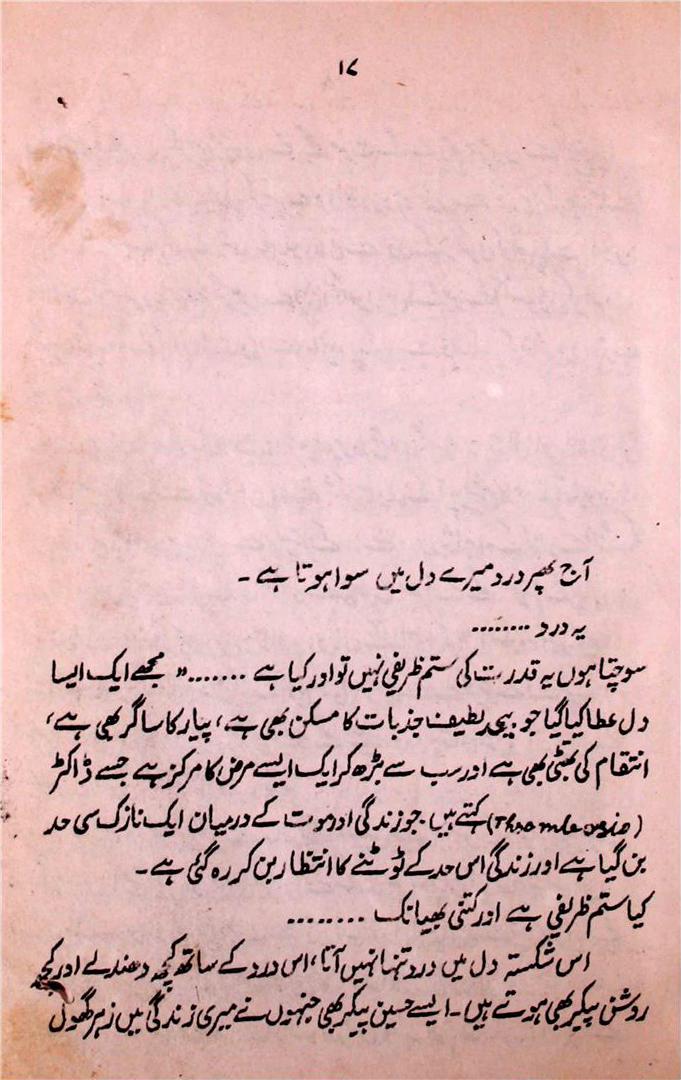 ۱۷
آج پھر درد میرے دل میں سوا ہوتا ہے ۔
یہ درد ........
سوچتا ہوں یہ قدرت کی ستم ظریفی نہیں تو اور کیا ہے ....... " مجھے ایک ایسا
دل عطا کیا گیا جو بیحد لطیف جذبات کا مسکن بھی ہے ، پیار کا ساگر بھی ہے ،
انتقام کی بھٹی بھی ہے اور سب سے بڑھ کر ایک ایسے مرض کا مرکز ہے جسے ڈاکٹر
(Thromleosis) کہتے ہیں جو زندگی اور موت کے درمیان ایک نازک سی حد
بن گیا ہے اور زندگی اس حد کے ٹوٹنے کا انتظار بن کر رہ گئی ہے ۔
کیا ستم ظریفی ہے اور کتنی بھیانک ........
اس شکستہ دل میں درد تنہا نہیں آتا ، اس درد کے ساتھ کچھ دھندلے اور کچھ
روشن پیکر بھی ہوتے ہیں ۔ ایسے حسین پیکر بھی جنہوں نے میری زندگی میں زہر گھول